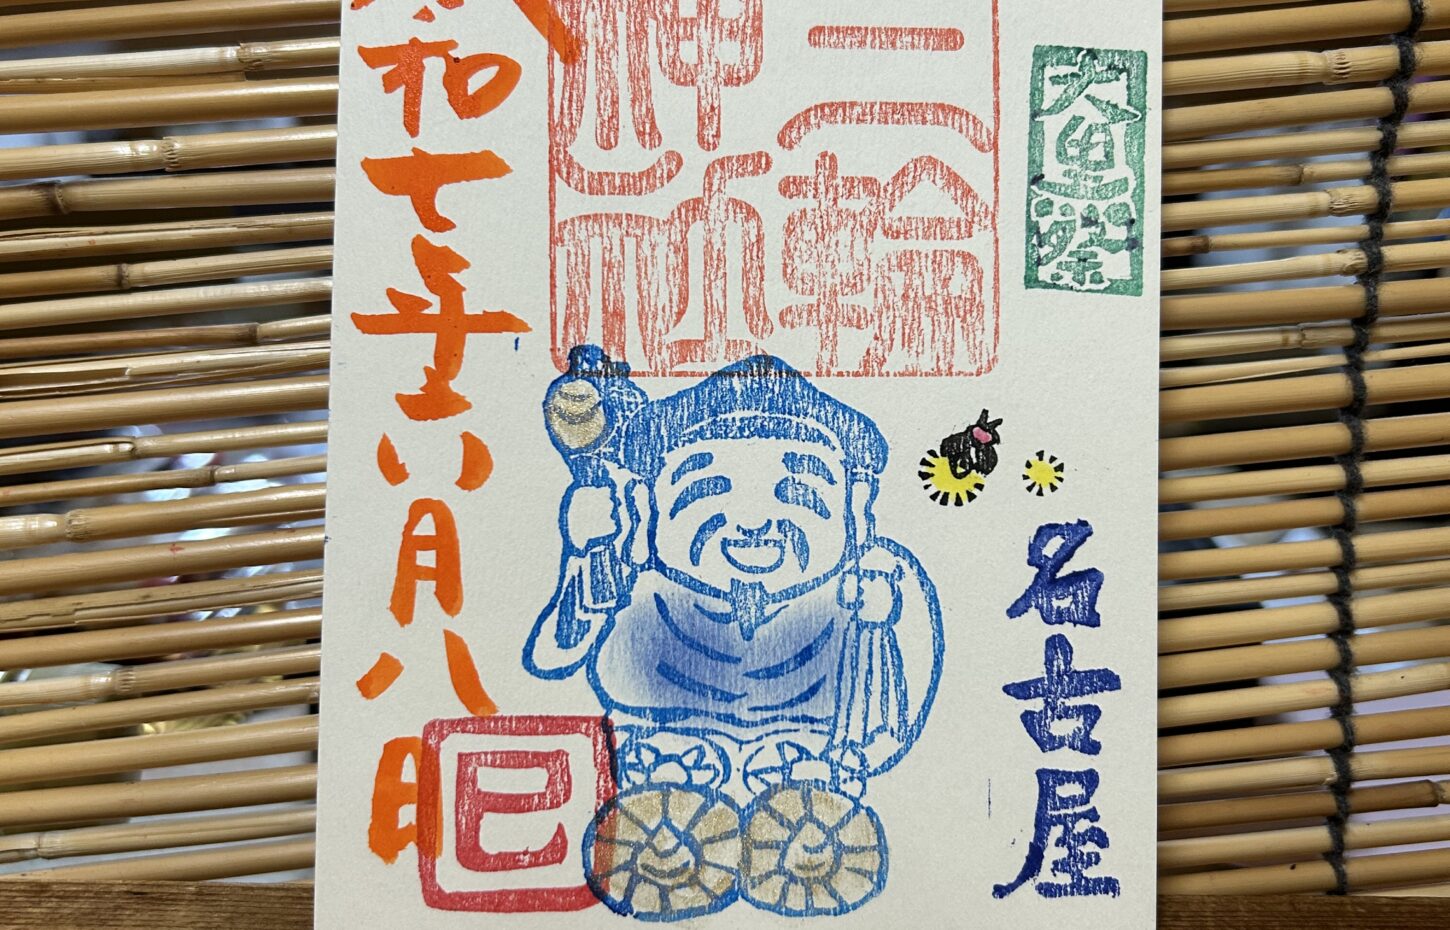 大黒祭
名古屋
三輪
神社
令和七年六月八日
巳